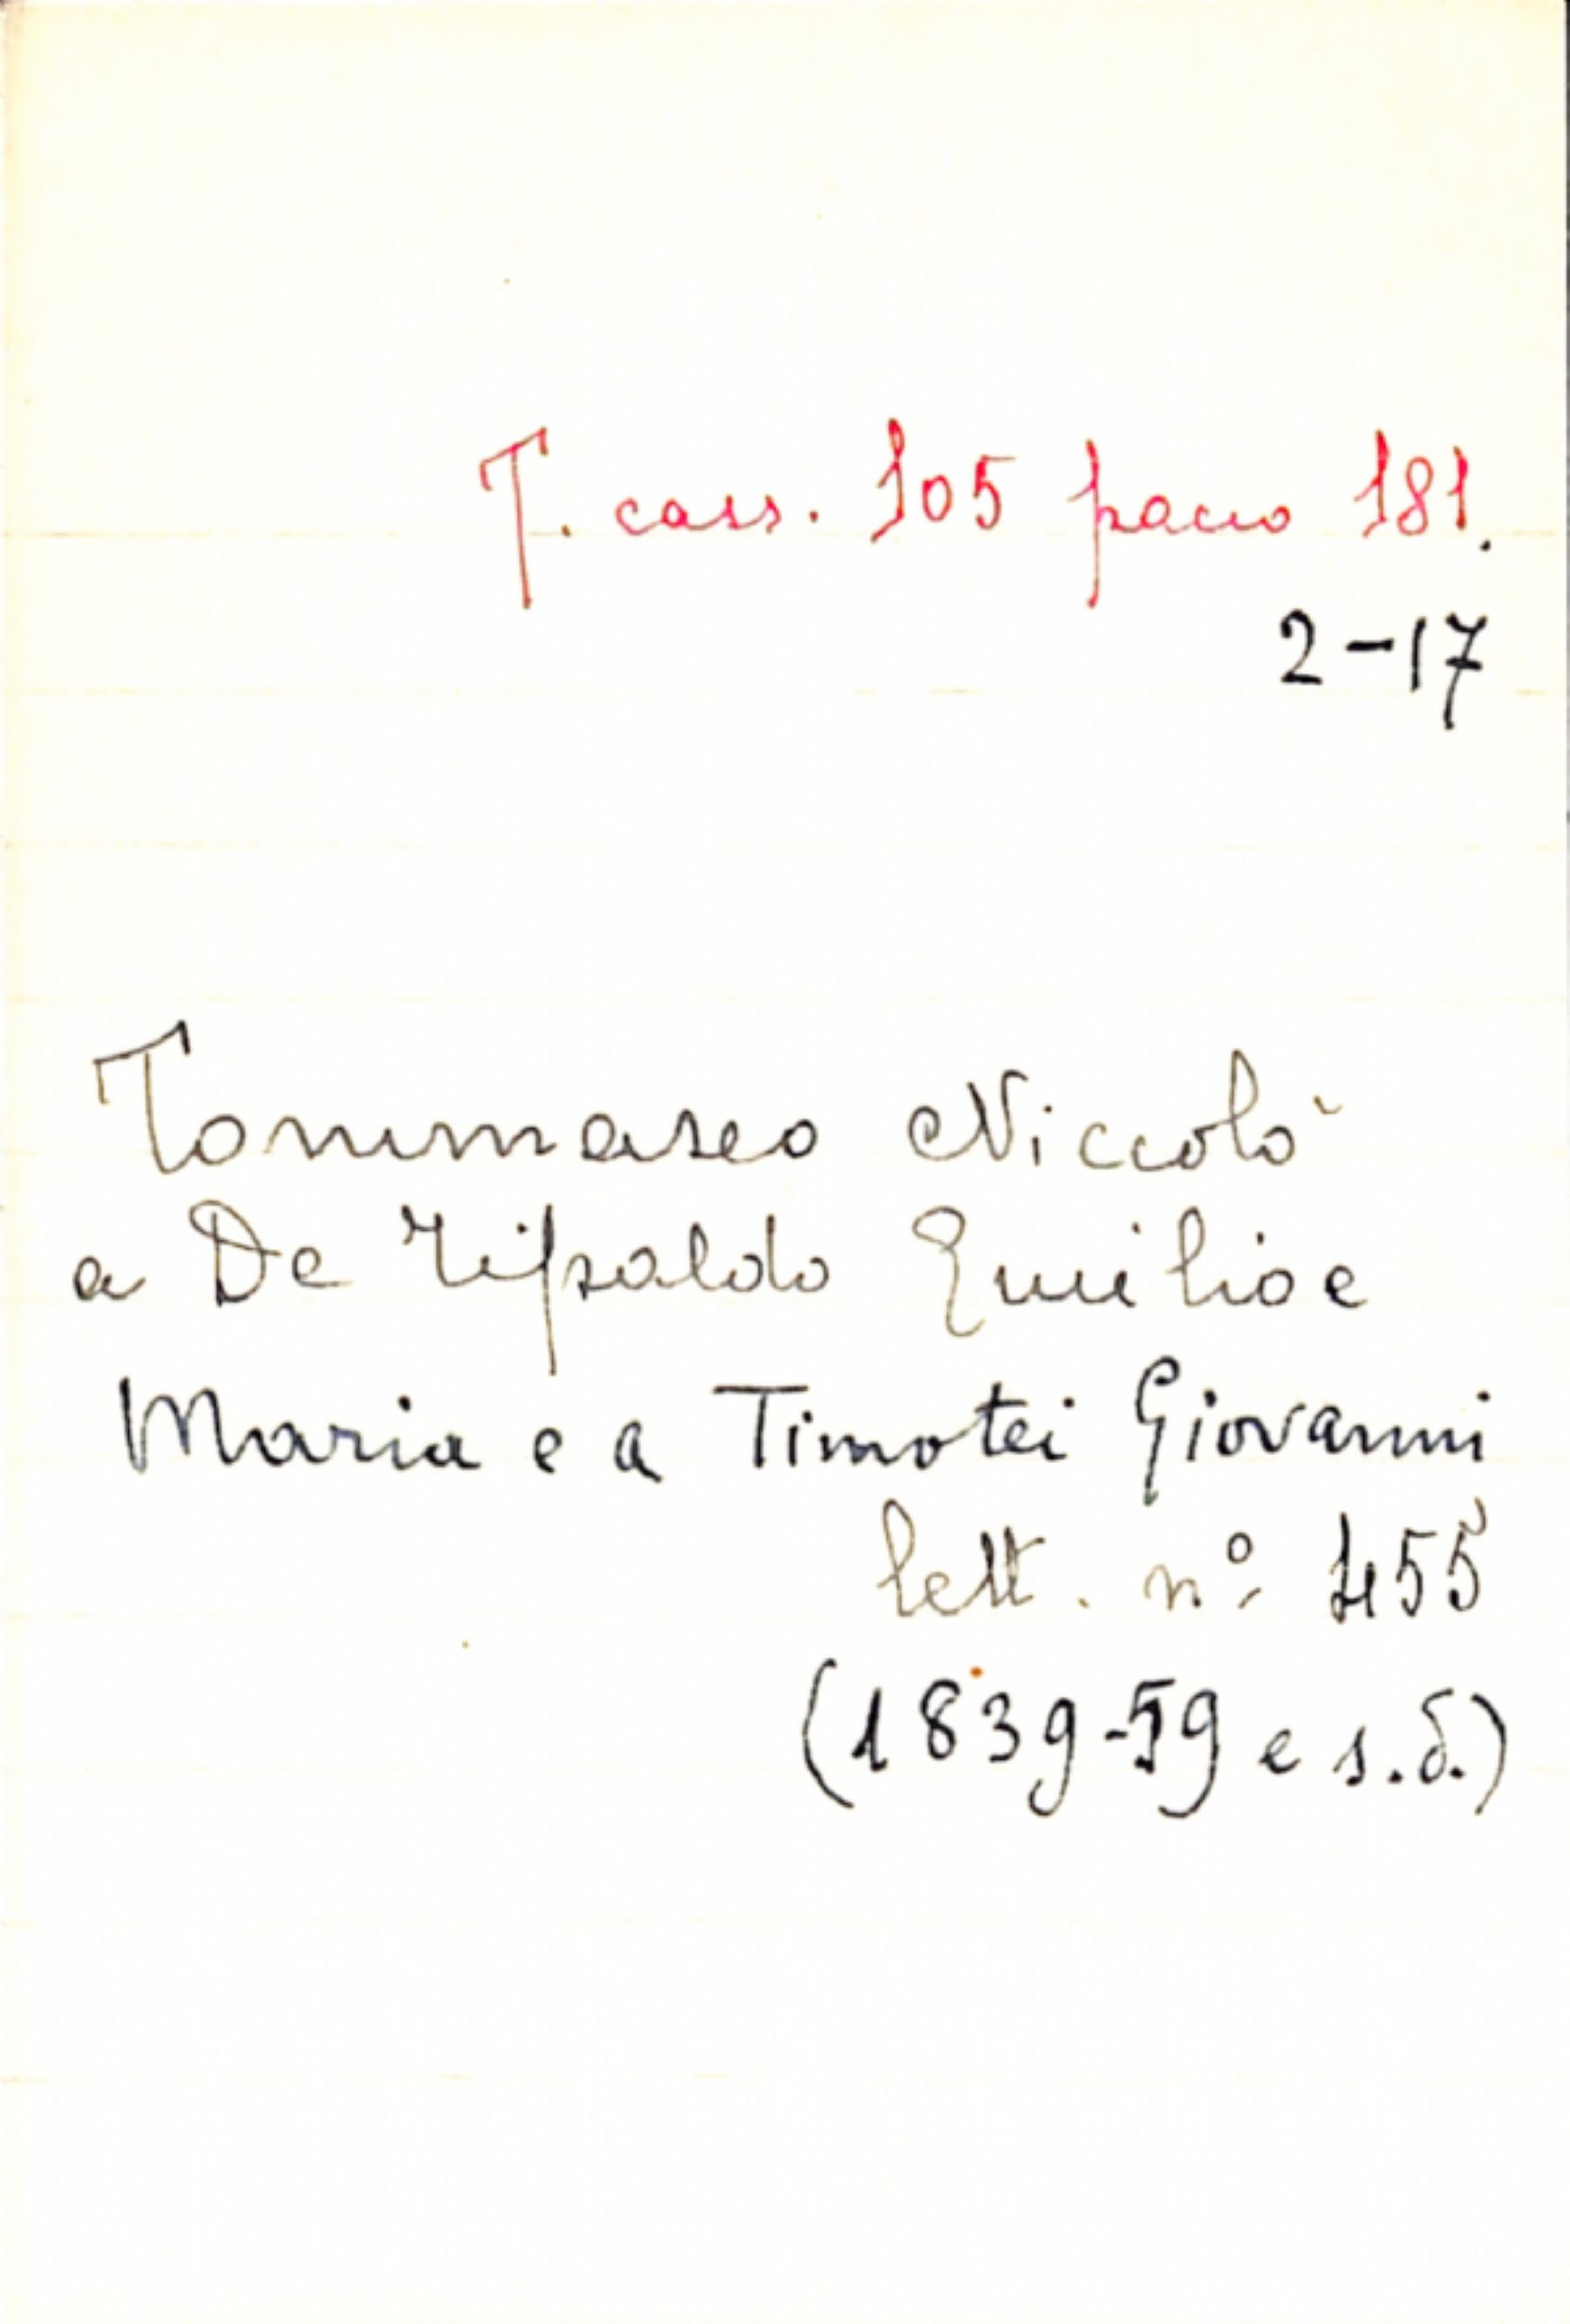 T. cass. 105 pacco 181.
2-17
Tommaseo Niccolò
a De Tipaldo Emilio e
Maria e a Timotei Giovanni
lett. nº 455
(1839-59 e s.d.)